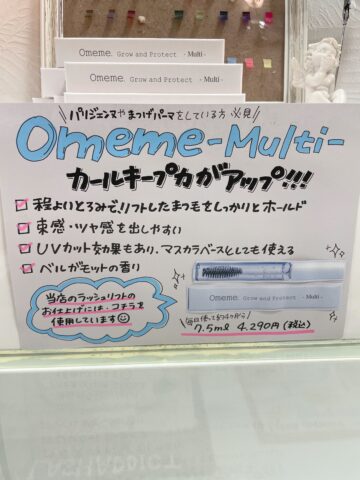 Omeme. Grow and Protect - Multi -
Omeme. Grow and Protect - Multi -
パリジェンヌやまつげパーマをしている方 必見
Omeme-Multi-
カールキープ力がアップ!!!
程よいとろみで、リフトしたまつ毛をしっかりとホールド
束感・ツヤ感を出しやすい
UVカット効果もあり、マスカラベースとしても使える
ベルガモットの香り
当店のラッシュリフトの
お仕上げには、コチラを
使用しています
Omeme. Grow and Protect - Multi -
毎日使って約4ヶ月
7.5ml 4.290円(税込)